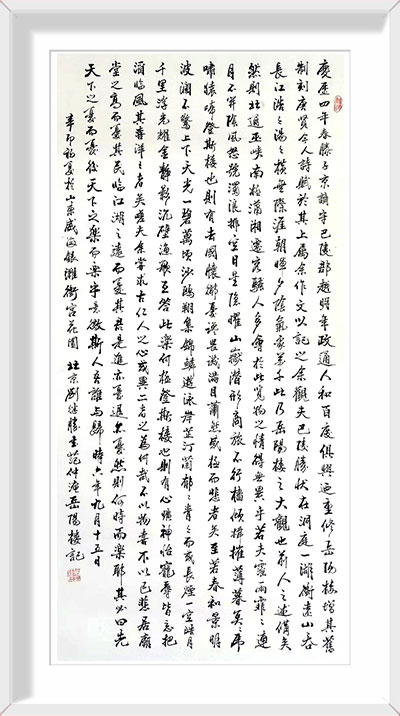 慶歷四年春滕子京謫守巴陵郡越明年政通人和百度俱興乃重修岳陽樓增其舊
制刻唐賢今人詩賦於其上屬余作文以記之余觀夫巴陵勝狀在洞庭一湖銜遠山吞
長江浩々湯々橫無際涯朝暉夕陰氣象萬千此乃岳陽樓之大觀也前人之述備矣
然則北通巫峽南極瀟湘遷客騷人多會於此覽物之情得無異乎若夫霪雨霏々連
月不開陰風怒號濁浪排空日星隱曜山嶽潛形商旅不行檣傾楫摧薄暮冥々虎
嘯猿啼登斯樓也則有去國懷鄉憂讒畏譏滿目蕭然感極而悲者矣至若春和景明
波瀾不驚上下天光一碧萬頃沙鷗翔集錦鱗游泳岸芷汀蘭郁々青々而或長煙一空皓月
千里浮光耀金靜影沉璧漁歌互答此樂何極登斯樓也則有心曠神怡寵辱皆忘把
酒臨風其喜洋々者矣嗟夫余嘗求古仁人之心或異二者之為何哉不以物喜不以己悲居廟
堂之高而憂其民臨江湖之遠而憂其君是進亦憂退亦憂然則何時而樂耶其必曰先
天下之憂而憂後天下之樂而樂乎噫微斯人吾誰與歸時六年九月十五日
辛卯初夏於山東威海銀灘宮花園 北京劉勝書范仲淹岳陽樓記